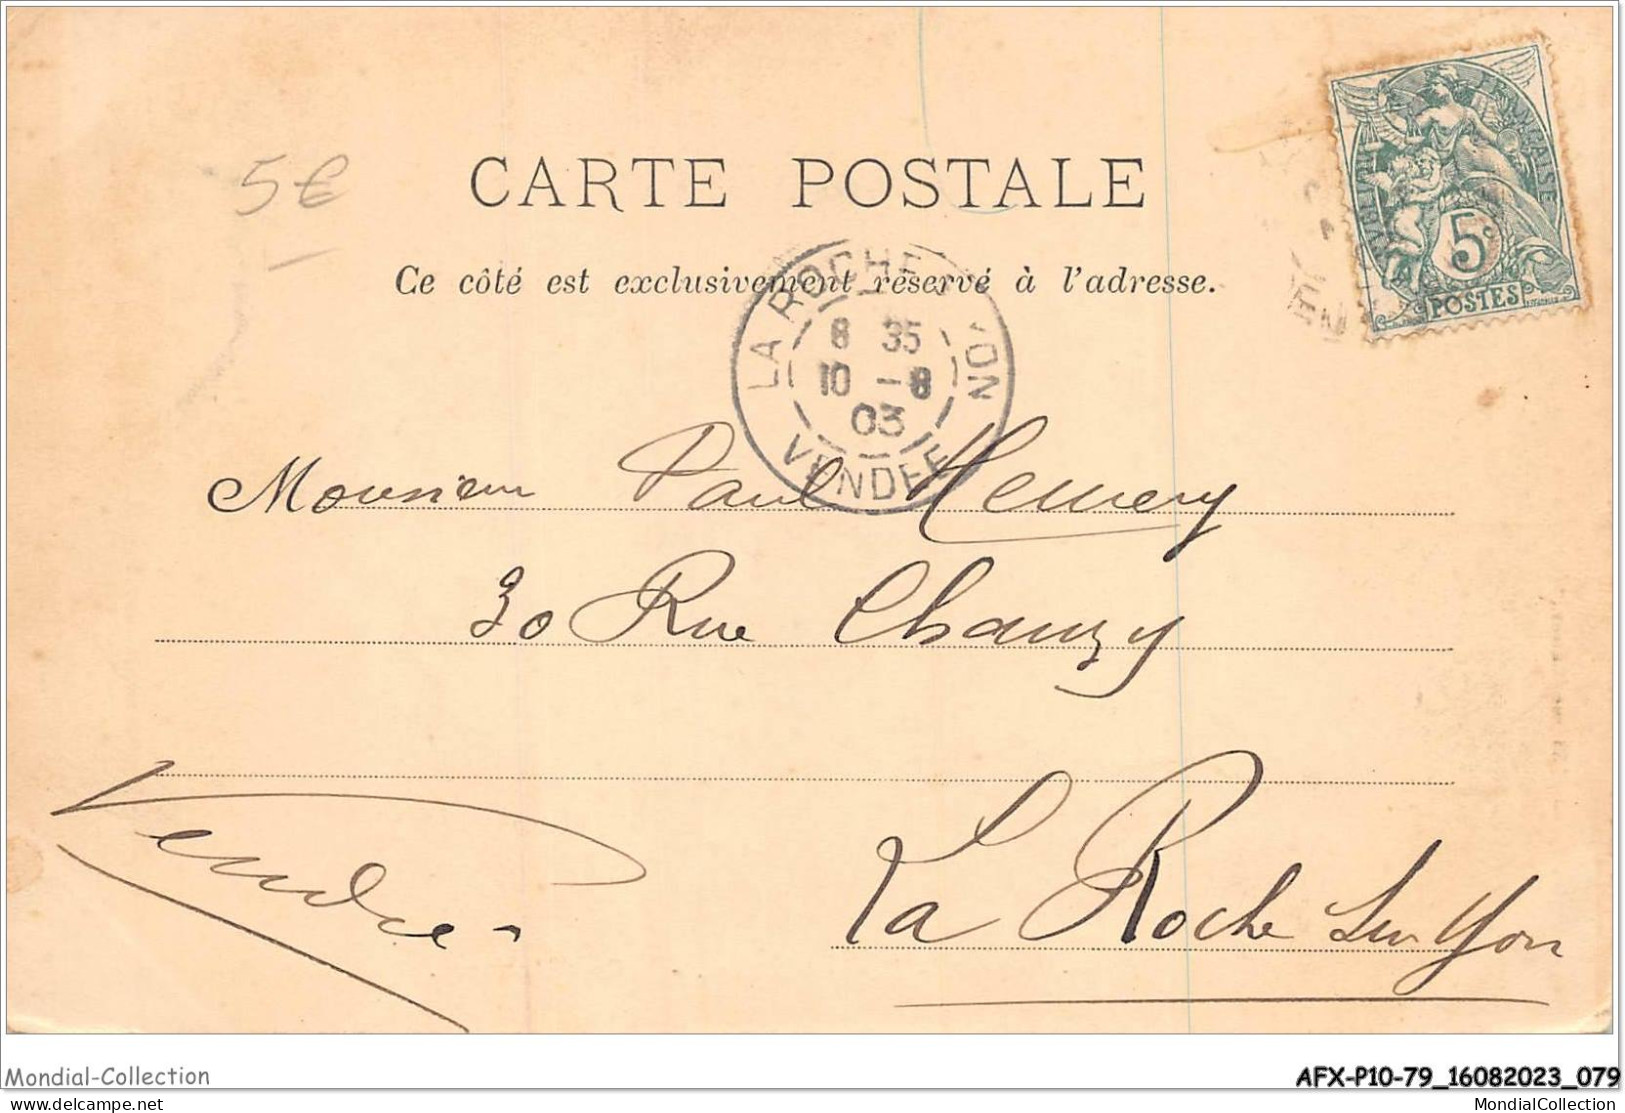 5€
CARTE POSTALE
Ce côté est exclusivement réservé à l'adresse.
RÉPUBLIQUE FRANÇAISE
5c
POSTES
LA ROCHE YON
8 35
10 - 8
03
VENDEE
Monsieur Paul Hemery
30 Rue Chanzy
La Roche sur Yon
Vendée
Mondial-Collection
AFX-P10-79_16082023_079
delcampe.net
MondialCollection